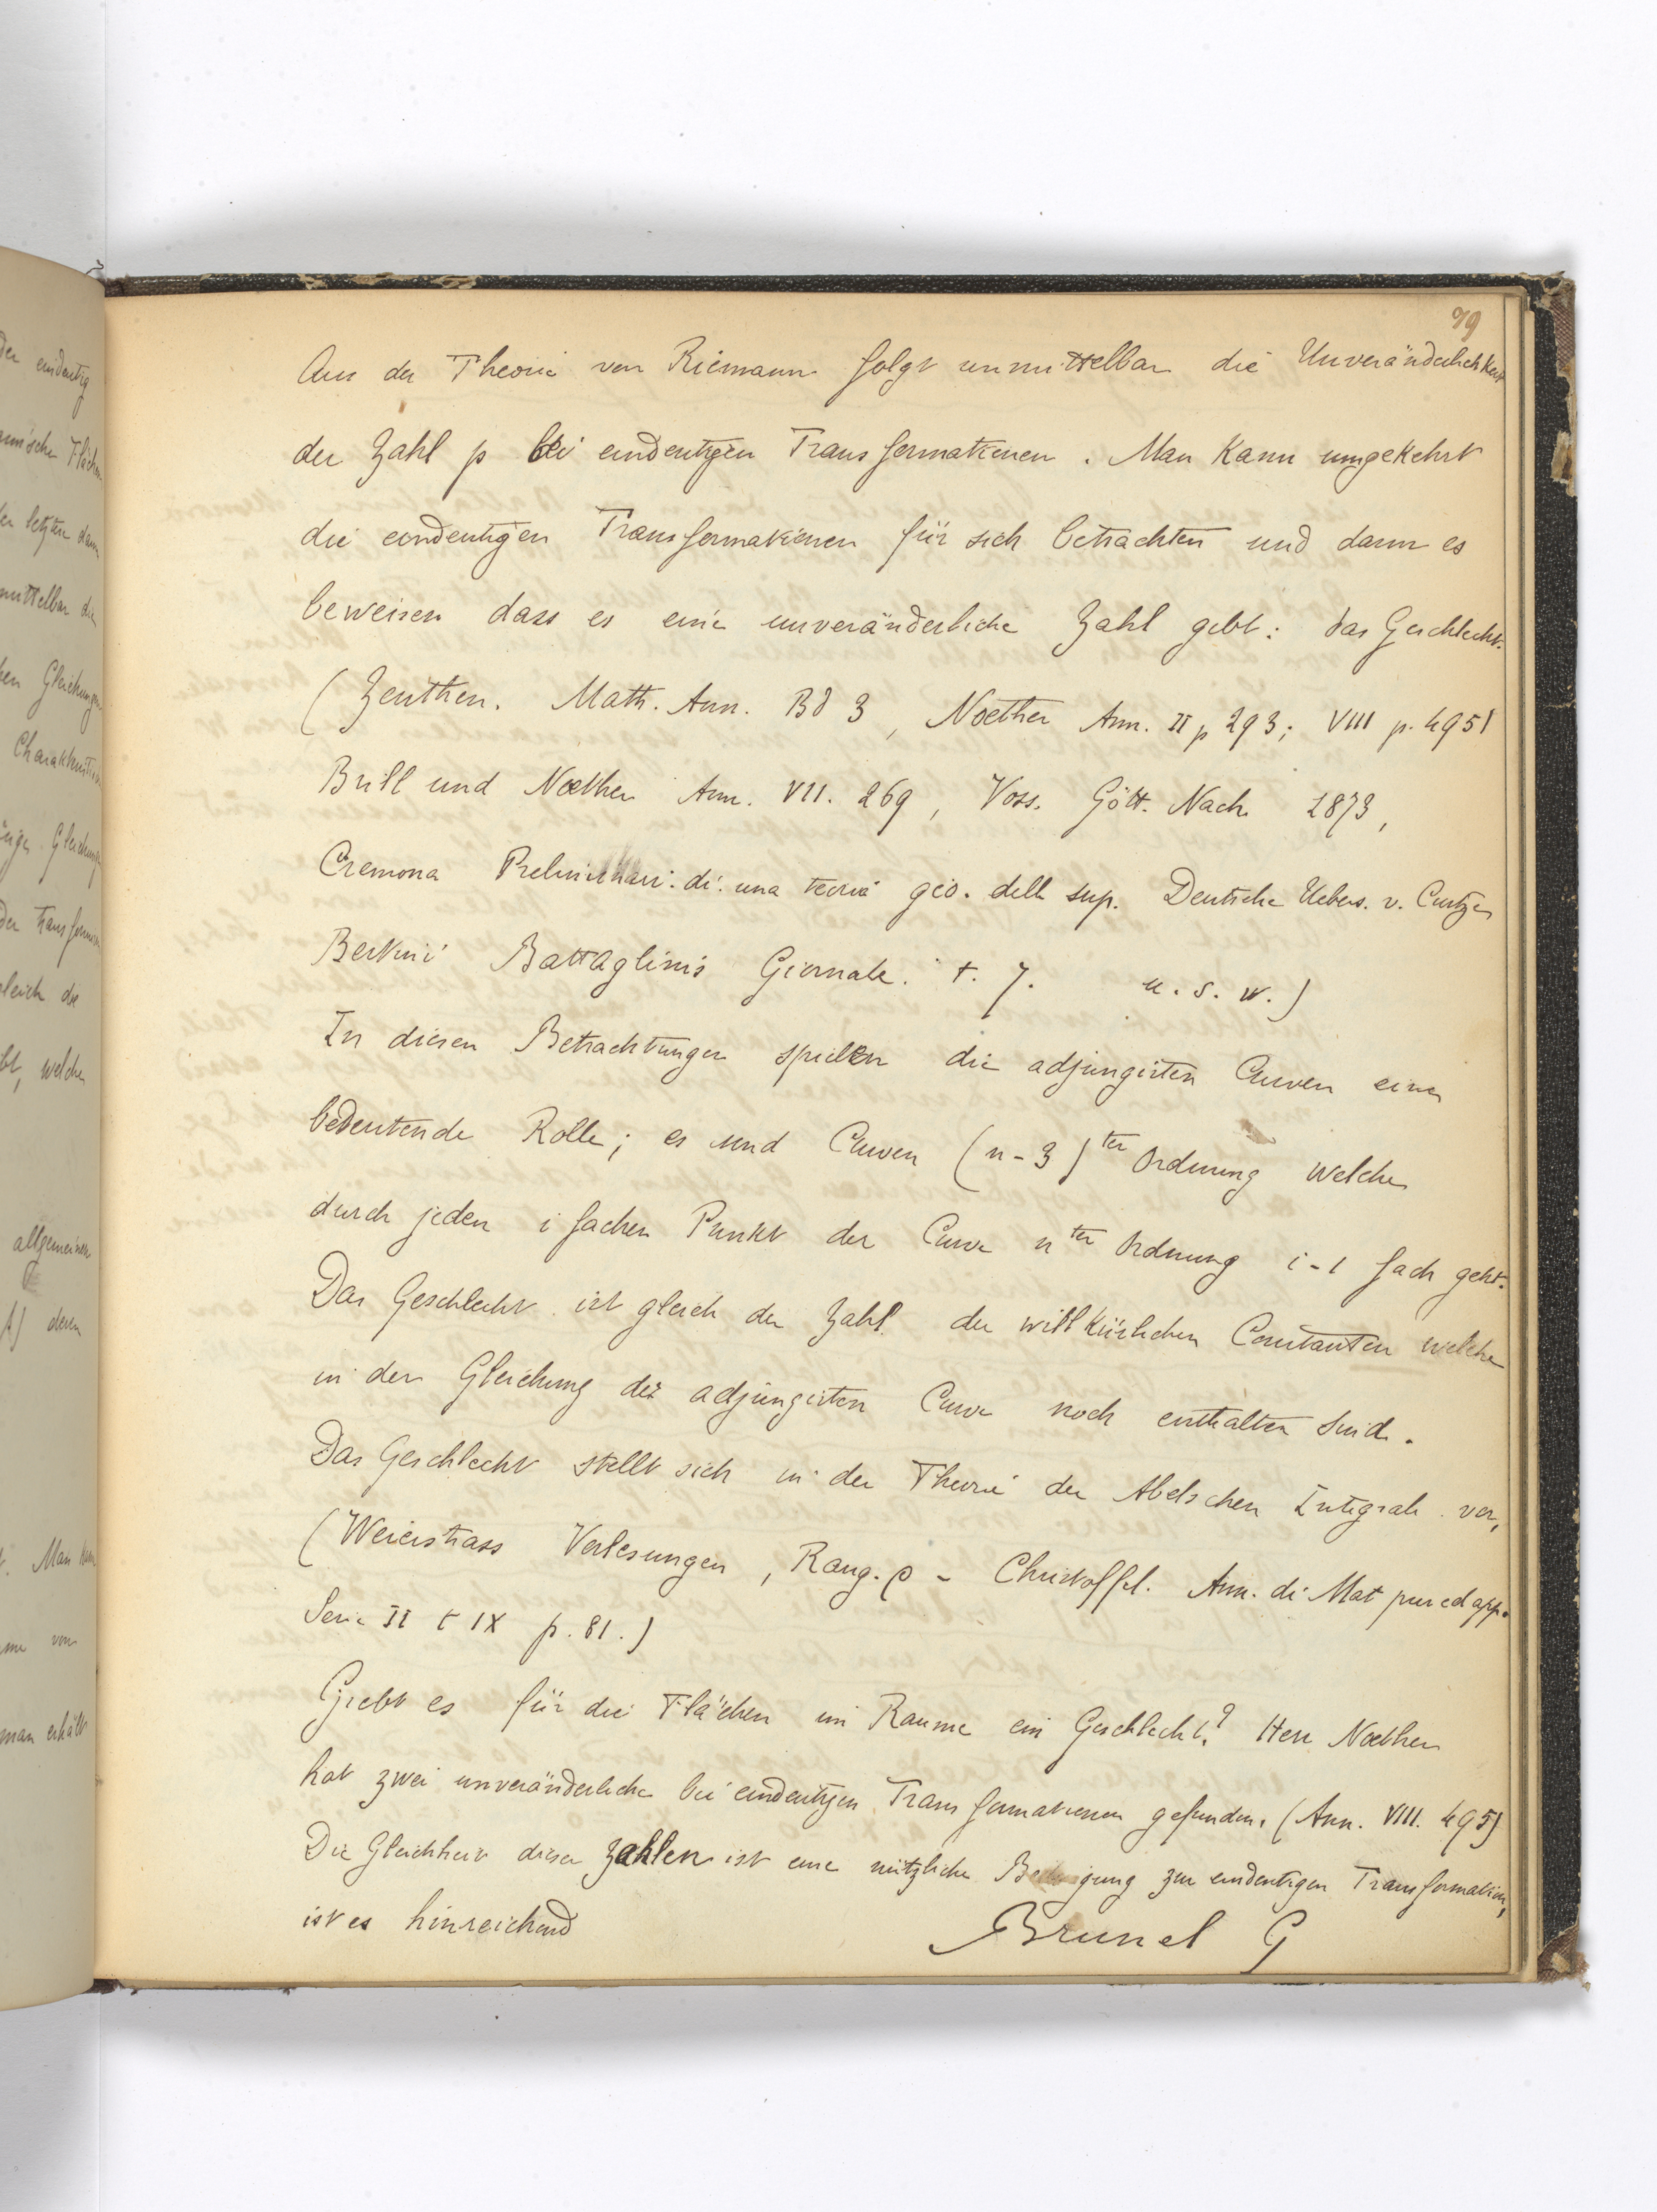 99
Aus der Theorie von Riemann folgt unmittelbar die Unveränderlichkeit
der Zahl p bei eindeutigen Transformationen. Man kann umgekehrt
die eindeutigen Transformationen für sich betrachten und dann es
beweisen dass es eine unveränderliche Zahl gebt: das Geschlecht.
(Zeuthen. Math. Ann. Bd 3, Noether Ann. II p 293; VIII p. 495)
Brill und Noether Ann. VII. 269, Voss. Gött. Nach. 1873,
Cremona Preliminari di una teoria geo. delle sup. Deutsche Uebers. v. Curtze
Bertini Battaglinis Giornale. t. 7. u. s. w.)
In diesen Betrachtungen spielen die adjungirten Curven eine
bedeutende Rolle; es sind Curven (n-3)ter Ordnung welche
durch jeden i fachen Punkt der Curve nter Ordnung i-1 fach geht.
Das Geschlecht ist gleich der Zahl der willkürlichen Constanten welche
in der Gleichung der adjungirten Curve noch enthalten sind.
Das Geschlecht stellt sich in der Theorie der Abelschen Integrale vor,
(Weierstrass Vorlesungen, Rang. ρ - Christoffel. Ann. di Mat pur ed app.
Serie II t IX p. 81.)
Giebt es für die Flächen im Raume ein Geschlecht? Herr Noether
hat zwei unveränderliche bei eindeutigen Transformationen gefunden. (Ann. VIII. 495)
Die Gleichheit dieser Zahlen ist eine nützliche Bedingung zur eindeutigen Transformation,
ist es hinreichend
Brunel G